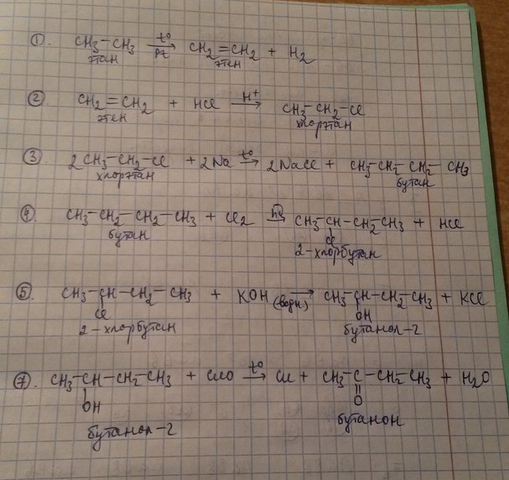 ① CH3-CH3 t° → Pt CH2=CH2 + H2
этан этен
② CH2=CH2 + HCl H+ → CH3-CH2-Cl
этен хлорэтан
③ 2CH3-CH2-Cl + 2Na t° → 2NaCl + CH3-CH2-CH2-CH3
хлорэтан бутан
④ CH3-CH2-CH2-CH3 + Cl2 hν → CH3-CH-CH2-CH3 + HCl
бутан Cl
2-хлорбутан
⑤ CH3-CH-CH2-CH3 + KOH (водн) → CH3-CH-CH2-CH3 + KCl
Cl OH
2-хлорбутан бутанол-2
⑦. CH3-CH-CH2-CH3 + CuO t° → Cu + CH3-C-CH2-CH3 + H2O
OH O
бутанол-2 бутанон